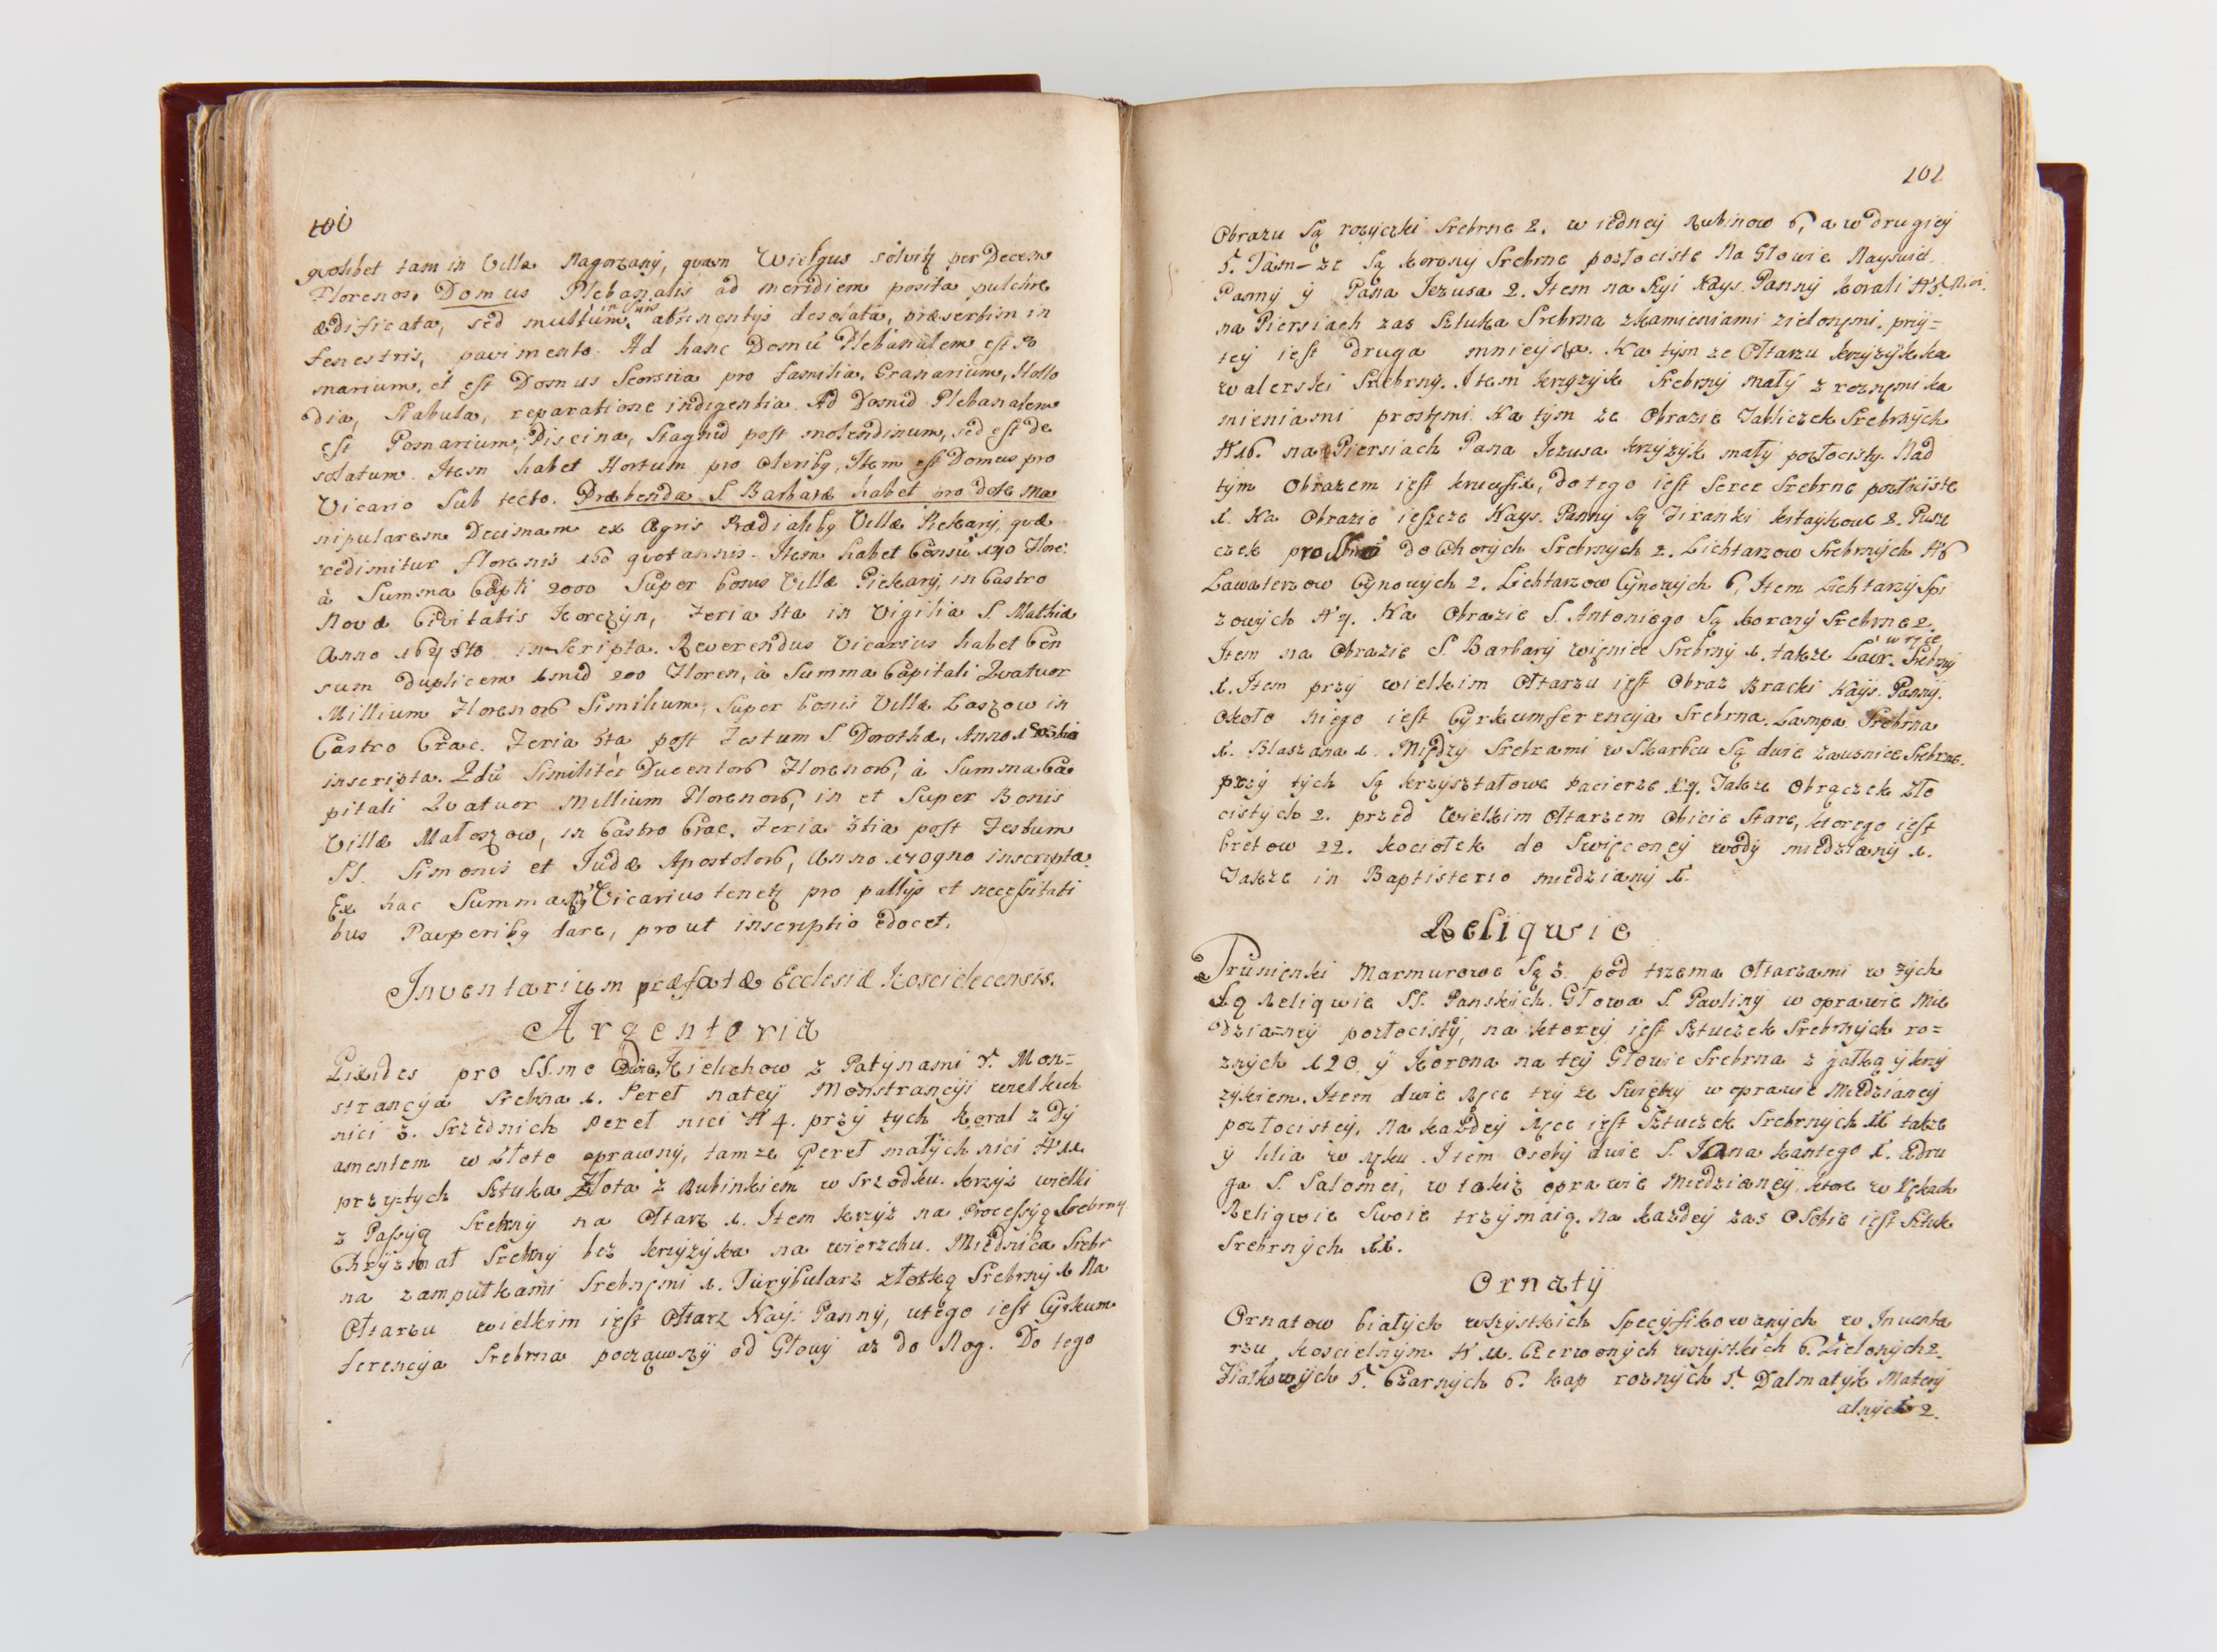 100
quolibet tam in Villa Nagorzany, quam Wielgus solvitur per Decem
Florenos. Domus Plebanalis ad meridiem posita pulchre
ædificata, sed multum in suis attinentÿs desolata, præsertim in
fenestris, pavimento. Ad hanc Domũ Plebanalem est Po
marium, et est Domus Seorsiva pro familia, Granarium, Hallo
dia, Stabula, reparatione indigentia. Ad Domũ Plebanalem
est Pomarium, Piscina, Stagnũ post molendinum, sed est de
solatum. Item habet Hortum pro oleribus, Item est Domus pro
Vicario Sub tecto. Præbenda S. Barbaræ habet pro dote Ma
nipularem Decimam ex Agris Prædialibus Villæ Piekary, quæ
redimitur florenis 160 quotannis. Item habet Censũ 140 Flore:
à Summa Capli 2000 Super bonis Villæ Piekary, in Castro
Novæ Civitatis Korczyn, Feria 5ta in Vigilia S. Mathiæ
Anno inscripta. Reverendus Vicarius habet Cen
sum duplicem 200 Floren, à Summa Capitali Quatuor
Millium Florenorum Similium, Super bonis Villæ Laszow in
Castro Crac. Feria 5ta post Festum S. Dorothæ, Anno
inscripta. 2dũ Similitèr Ducentorum Florenorum, à Summa Ca
pitali Quatuor Millium Florenorum, in et Super Bonis
Villæ Małoszow, in Castro Crac. Feria 3tia post Festum
SS. Simonis et Judæ Apostolorum, Anno inscripta.
Ex hac Summa Vicarius tenetur pro pallÿs et necessitati
bus Pauperibus dare, prout inscriptio edocet.
Inventarium præfatæ Ecclesiæ Koscielecensis.
Argenteria
Pixides pro SS.mo Dwie, Kielichow z Patynami 5. Mon=
strancÿa Srebrna 1. Pereł na teÿ Monstrancÿi wielkich
nici 3. Srzednich Pereł nici N 4. przÿ tych Koral z Dÿ
amentem w złoto oprawnÿ, tamze Pereł małÿch nici N 11
przÿ tych Sztuka Złota z Rubinkiem w Srzodku. Krzÿż wielki
z Passÿą Srebrnÿ na Ołtarz 1. Item Krzÿż na Processÿą Srebrnÿ
Chrÿzmał Srebrnÿ bez Krzÿzÿka na wierzchu. Miednica Srebr
na z ampułkami Srebnęmi 1. Turÿbularz z łotką Srebrnÿ 1. Na
Ołtarzu wielkim iest Ołtarz Naÿ: Pannÿ, u tego iest Cÿrkum
ferencÿa Srebrna począwszÿ od Głowÿ az do Nog. Do tego
101
Obrazu Są rozÿczki Srebrne 2. w iedneÿ Rubinow 6, a w drugieÿ
5. Tam-ze Są Koronÿ Srebrne pozłociste Na Głowie Nayświęt.
Pannÿ ÿ Pana Jezusa 2. Item na Szÿi Nays. Pannÿ Korali N 5. Nici.
na Piersiach zas Sztuka Srebrna z kamieniami zielonęmi, przÿ=
teÿ iest druga mnieÿsza. Na tÿm ze Ołtarzu krzÿzÿk ka
walerski Srebrnÿ. Item krzÿzÿk Srebrnÿ małÿ z roznęmi ka
mieniami prostęmi. Na tÿm ze Obrazie Tabliczek Srebrnÿch
N 16. na Piersiach Pana Jezusa krzÿzÿk małÿ pozłocistÿ. Nad
tÿm Obrazem iest krucyfix, do tego iest Serce Srebrne pozłociste
1. Na Obrazie ieszcze Nays. Pannÿ Są Firanki kitaÿkowe 2. Pusz
czek do Chorÿch Srebrnÿch 2. Lichtarzow Srebrnÿch N 6
Lawaterzow Cÿnowÿch 2. Lichtarzow Cÿnowÿch 6, Item Lichtarzÿ Spi
zowÿch N 4. Na Obrazie S. Antoniego Są Koronÿ Srebrne 2.
Item na Obrazie S. Barbarÿ wieniec Srebrnÿ 1. takze Laur. w ręce Srebrnÿ
1. Item przÿ wielkim Ołtarzu iest Obraz Bracki Naÿs. Pannÿ.
około niego iest Cÿrkumferencÿa Srebrna. Lampa Srebrna
1. Blaszana 1. Międzÿ Srebrami w Skarbcu Są dwie zausnice Srebrne.
przÿ tÿch Są krzÿształowe Pacierze Takze Obrączek zło
cistÿch 2. przed Wielkim Ołtarzem Obicie Stare, ktorego iest
bretow 22. Kociołek do Swięconeÿ wodÿ miedzianÿ 1.
Takze in Baptisterio miedzianÿ 1.
Reliqwie
Trunienki Marmurowe Są 3. pod trzema Ołtarzami w tÿch
Są Reliqwie SS. Panskich. Głowa S. Paulinÿ w oprawie Mie
dzianeÿ pozłocistÿ, na ktoreÿ iest Sztuczek Srebrnÿch ro=
znÿch 120. ÿ Korona na teÿ Głowie Srebrna z gałką ÿ krzÿ
zÿkiem. Item dwie Ręce teÿ ze Swiętÿ w oprawie Miedzianeÿ
pozłocisteÿ, Na każdeÿ Ręce iest Sztuczek Srebrnÿch 11 takze
ÿ lilia w ręku. Item Osobÿ dwie S. Jana Kantego 1. a dru
ga S. Salomei, w takiż oprawie Miedzianeÿ, ktore w Rękach
Reliqwie Swoie trzÿmaią. Na każdeÿ zas Osobie iest Sztuk
Srebrnÿch 11.
Ornatÿ
Ornatow białÿch wszÿstkich Specÿfikowanÿch w Inwenta
rzu Koscielnÿm N 11. Czerwonÿch wszÿstkich 6. Zielonÿch 2.
Fiałkowÿch 5. Czarnÿch 6. Kap roznÿch 5. Dalmatÿk Materÿ
alnÿch 2.